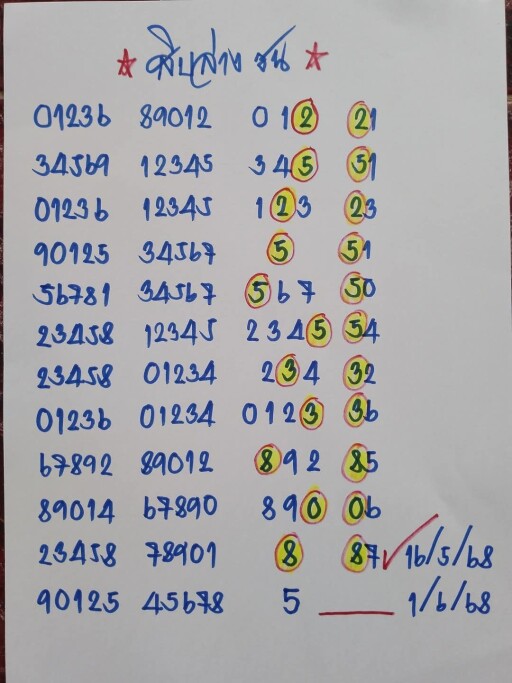 สิบล่าง ชน
01236 89012 012 21
34569 12345 345 51
01236 12345 123 23
90125 34567 5 51
56781 34567 567 50
23458 12345 2345 54
23458 01234 234 32
01236 01234 0123 36
67892 89012 892 85
89014 67890 890 06
23458 78901 8 87 16/5/68
90125 45678 5 1/6/68